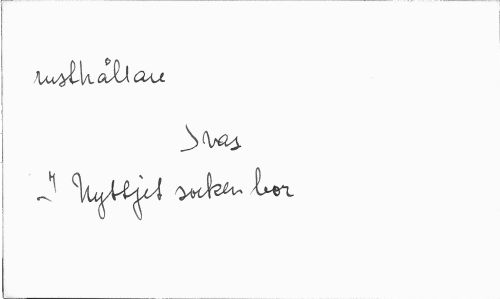 rusthållare
Ivas
~" Nyttjet socken bor